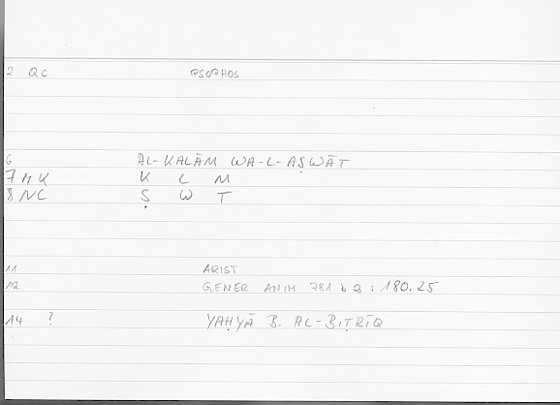 2 QC PSOPHOS
6 AL-KALĀM WA-L-AṢWĀT
7 MK K L M
8 NC Ṣ W T
11 ARIST
12 GENER ANIM 781 b 2 : 180.25
14 ? YAḤYĀ B. AL-BIṬRĪQ